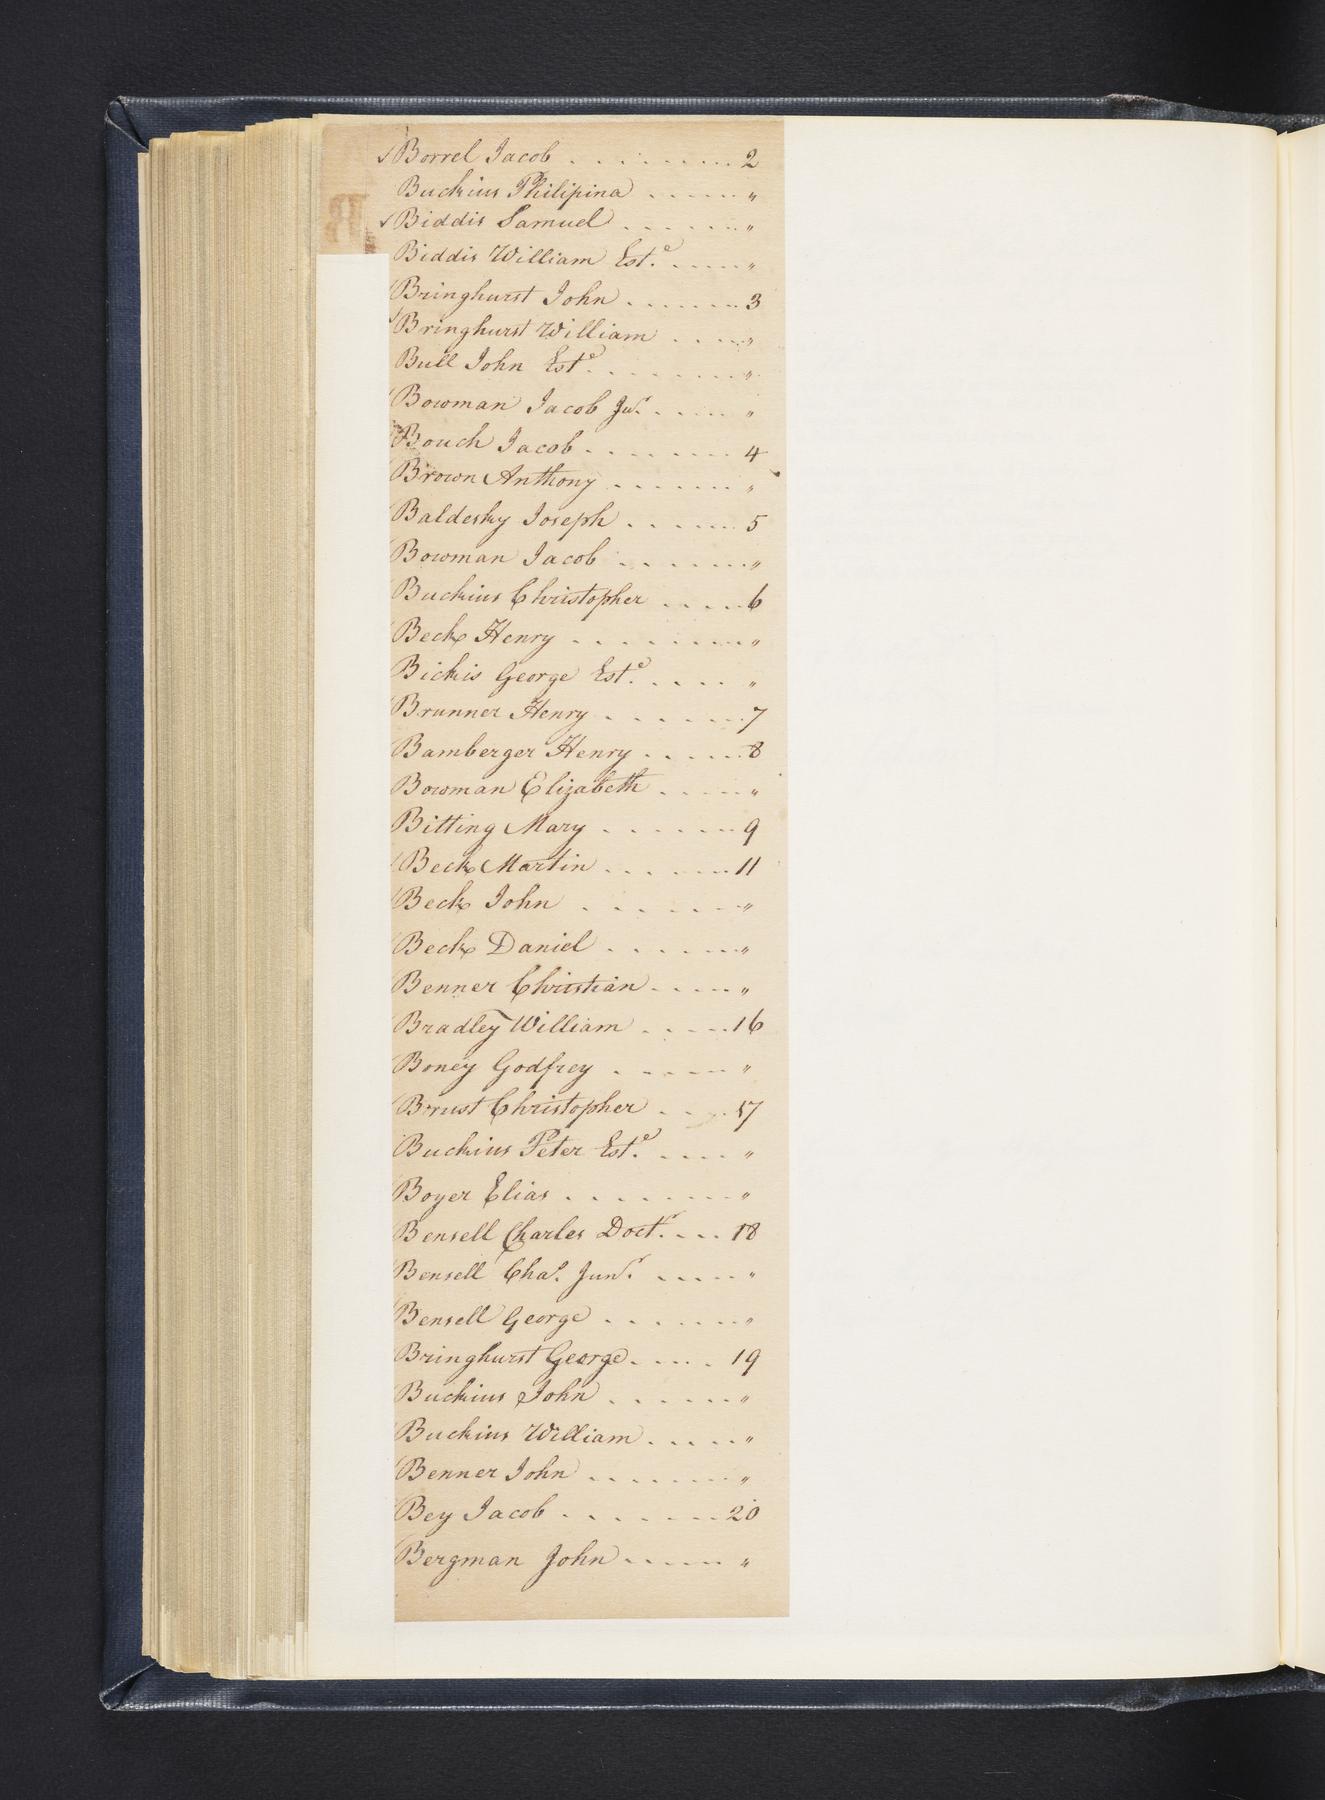 Borrel Jacob . . . . . . . . . 2
Buckius Philipina . . . . . . "
B
Biddis Samuel . . . . . . . "
Biddis William Est.e . . . . . "
Bringhurst John . . . . . . . 3
Bringhurst William . . . . . "
Bull John Est.e . . . . . . . "
Bowman Jacob Jur. . . . . "
Bouch Jacob . . . . . . . . 4
Brown Anthony . . . . . . . "
Baldesky Joseph . . . . . . 5
Bowman Jacob . . . . . . . "
Buckius Christopher . . . . . 6
Beck Henry . . . . . . . . "
Bickis George Est.e . . . . "
Brunner Henry . . . . . . . 7
Bamberger Henry . . . . . . 8
Bowman Elizabeth . . . . . "
Bitting Mary . . . . . . . 9
Beck Martin . . . . . . . 11
Beck John . . . . . . . "
Beck Daniel . . . . . . . "
Benner Christian . . . . . "
Bradley William . . . . . 16
Boney Godfrey . . . . . . "
Brust Christopher . . . . 17
Buckius Peter Est.e . . . . "
Boyer Elias . . . . . . . . "
Bensell Charles Doctr. . . . 18
Bensell Chas. Junr. . . . . . "
Bensell George . . . . . . . "
Bringhurst George . . . . . 19
Buckius John . . . . . . . "
Buckius William . . . . . "
Benner John . . . . . . . . "
Bey Jacob . . . . . . . . 20
Bergman John . . . . . . "